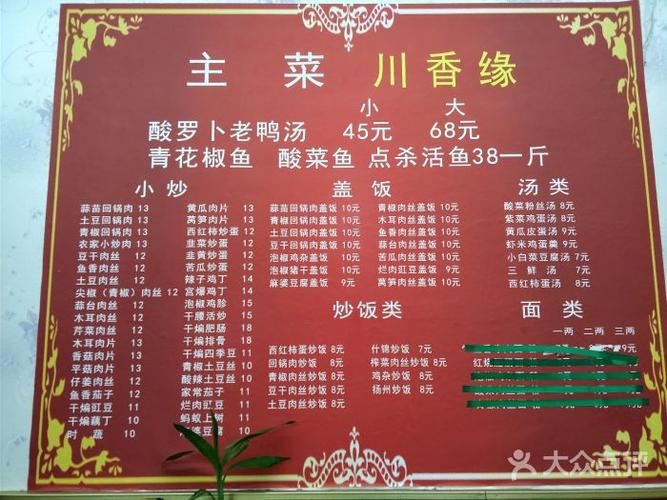 主 菜 川香缘
小 大
酸罗卜老鸭汤 45元 68元
青花椒鱼 酸菜鱼 点杀活鱼38一斤
小炒
蒜苗回锅肉 13
土豆回锅肉 13
青椒回锅肉 13
农家小炒肉 13
豆干肉丝 12
鱼香肉丝 12
土豆肉丝 12
尖椒（青椒）肉丝 12
蒜台肉丝 12
木耳肉丝 12
芹菜肉丝 12
木耳肉片 13
香菇肉片 13
平菇肉片 13
仔姜肉丝 12
鱼香茄子 12
干煸豇豆 11
干煸藕丁 10
时蔬 10
黄瓜肉片 13
莴笋肉片 13
西红柿炒蛋 12
韭菜炒蛋 12
韭黄炒蛋 12
苦瓜炒蛋 12
辣子鸡丁 14
宫爆鸡丁 14
泡椒鸡胗 15
干腰活炒 15
干煸肥肠 18
干煸排骨 18
干煸四季豆 11
青椒土豆丝 10
酸辣土豆丝 10
家常茄子 11
烂肉豇豆 11
蚂蚁上树 11
婆豆腐 10
盖饭
蒜苗回锅肉盖饭 10元
青椒回锅肉盖饭 10元
土豆回锅肉盖饭 10元
豆干回锅肉盖饭 10元
泡椒鸡杂盖饭 10元
泡椒猪干盖饭 10元
麻婆豆腐盖饭 9元
青椒肉丝盖饭 10元
木耳肉丝盖饭 10元
鱼香肉丝盖饭 10元
蒜台肉丝盖饭 10元
苦瓜肉丝盖饭 10元
烂肉豇豆盖饭 9元
莴笋肉丝盖饭 10元
汤类
酸菜粉丝汤 8元
紫菜鸡蛋汤 8元
黄瓜皮蛋汤 9元
虾米鸡蛋羹 9元
小白菜豆腐汤 7元
三鲜汤 7元
西红柿蛋汤 8元
炒饭类
西红柿蛋炒饭 8元
回锅肉炒饭 8元
青椒肉丝炒饭 8元
豆干肉丝炒饭 8元
土豆肉丝炒饭 8元
什锦炒饭 7元
榨菜肉丝炒饭 8元
鸡杂炒饭 8元
扬州炒饭 8元
面类
一两 二两 三两
9元
红烧
大众点评